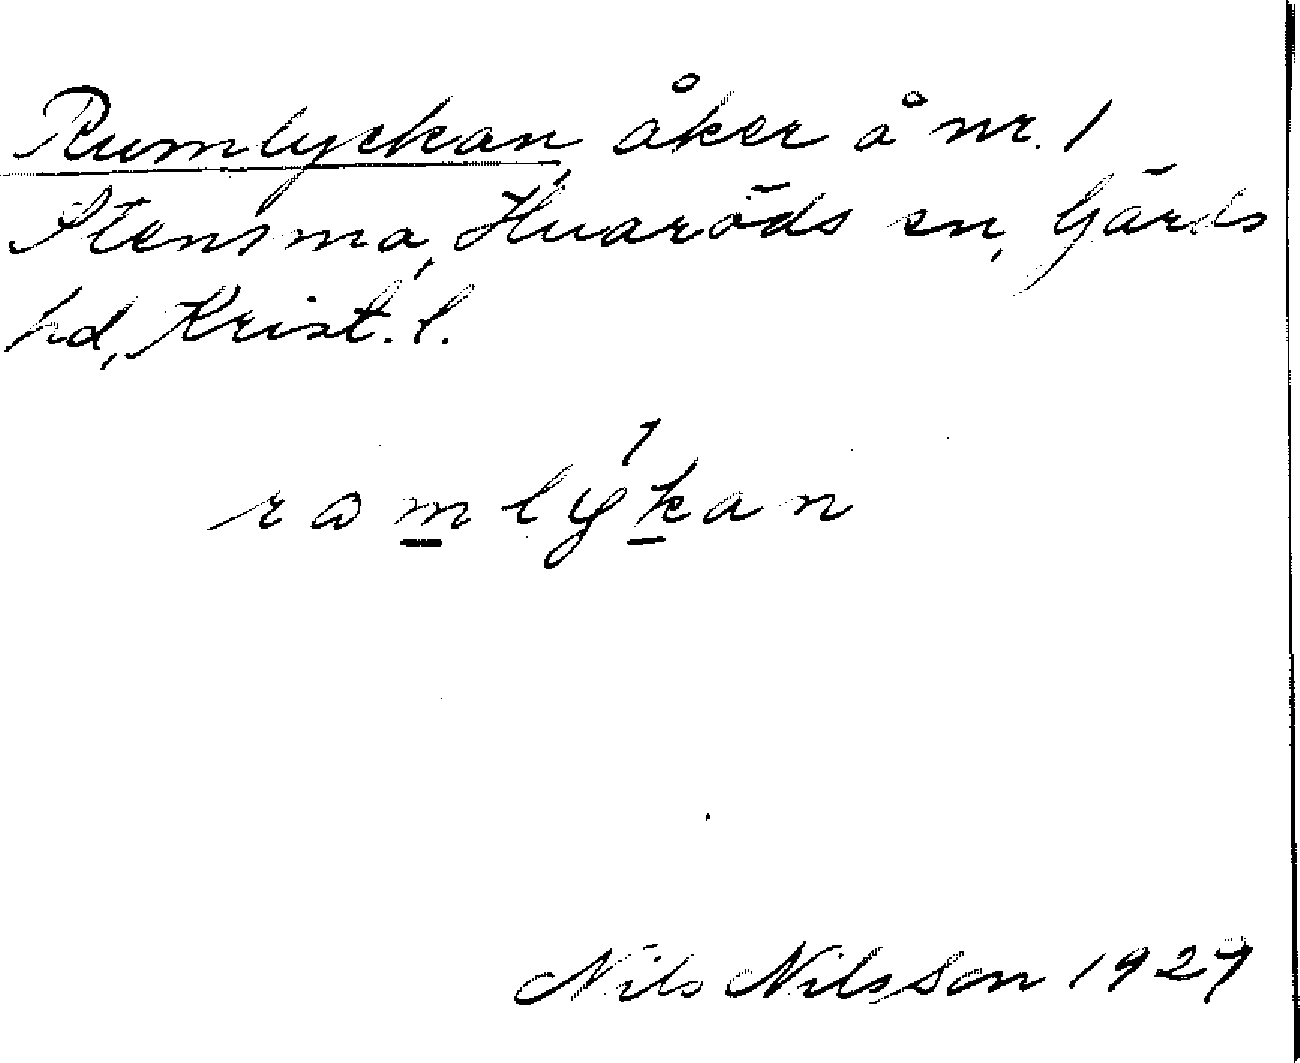 Rumlyckan åker å nr. 1
Stensma, Huaröds sn, Gärds
hd, Krist. l.
ramlykan
Nils Nilsson 1927